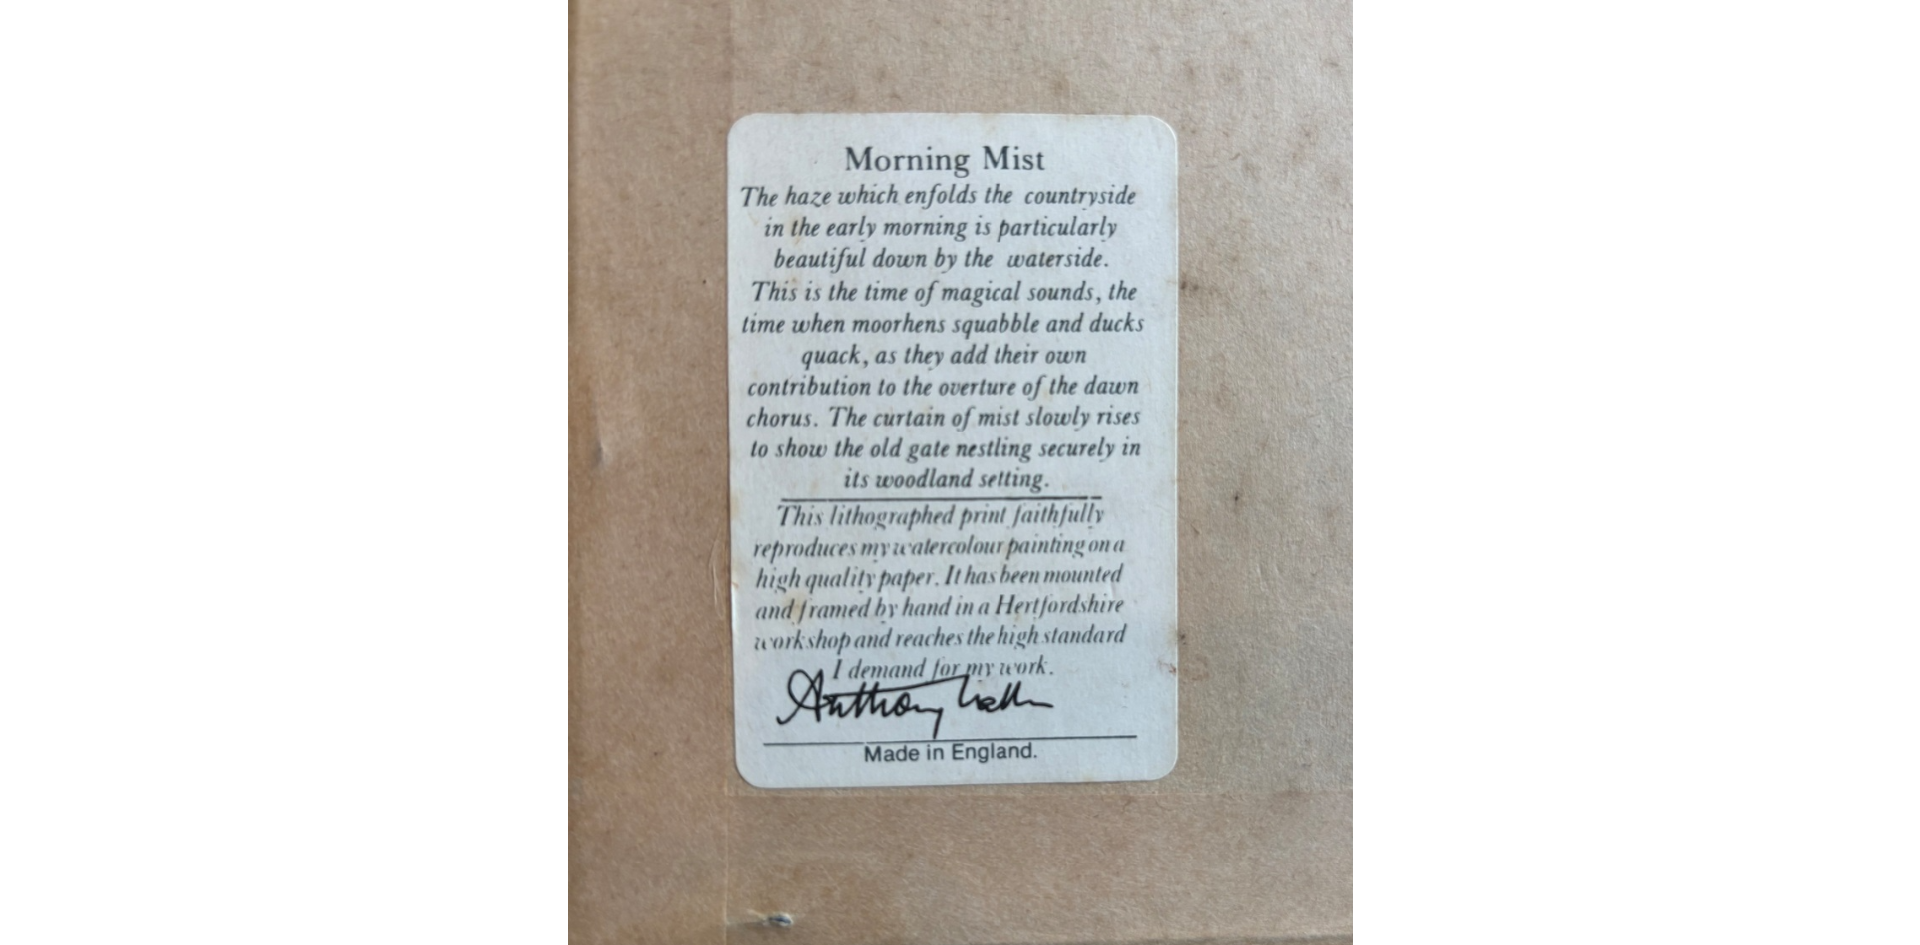 Morning Mist
The haze which enfolds the countryside
in the early morning is particularly
beautiful down by the waterside.
This is the time of magical sounds, the
time when moorhens squabble and ducks
quack, as they add their own
contribution to the overture of the dawn
chorus. The curtain of mist slowly rises
to show the old gate nestling securely in
its woodland setting.
This lithographed print faithfully
reproduces my watercolour painting on a
high quality paper. It has been mounted
and framed by hand in a Hertfordshire
workshop and reaches the high standard
I demand for my work.
Anthony
Made in England.